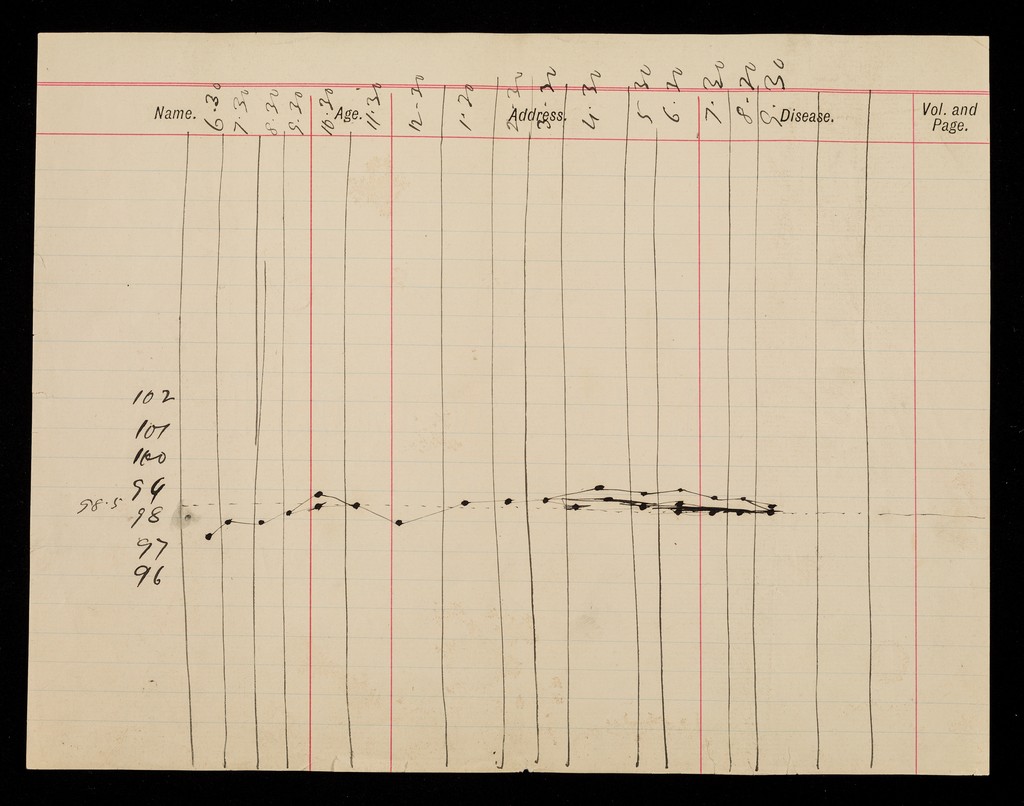 6.30 7.30 8.30 9.30 10.30 11.30 12.30 1.30 2.30 3.30 4.30 5.30 6.30 7.30 8.30 9.30
Name. Age. Address. Disease. Vol. and
Page.
102
101
100
99
98.5
98
97
96